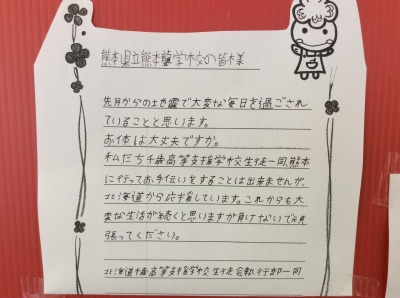 熊本県立熊本聾学校の皆様
先月からの地震で大変な毎日を過ごされ
ていることと思います。
お体は大丈夫ですか。
私たち千歳高等支援学校生徒一同、熊本
に行ってお手伝いをすることは出来ませんが、
北海道から応援しています。これからも大
変な生活が続くと思いますが負けないで頑
張ってください。
北海道千歳高等支援学校生徒会執行部一同